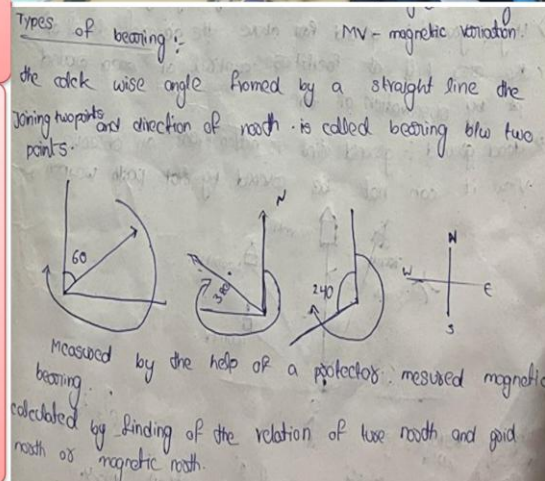 Types of bearing :-
MV - magnetic variation
the colck wise angle fromed by a straight line the
Joining two points and direction of nooth . is called bearing b/w two
points.
N
60
380°
240
N
W
E
S
Measured by the help of a protector . mesured magnetic
bearing.
calculated by finding of the relation of ture nooth and grid
nooth or magnetic nooth.